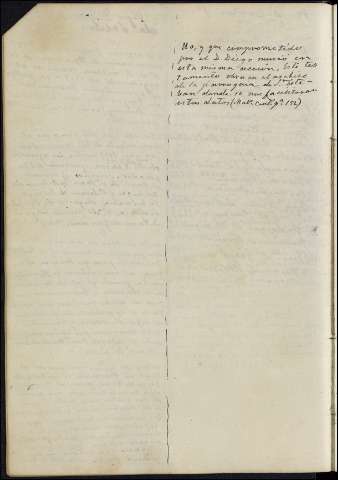 no, y que comprometido
por el D. Diego murió en
esta misma acción. Este tes
tamento obra en el archivo
de la parroquia de S. Este-
ban donde se nos facilitaron
estos datos (Mat. Codgº 152)